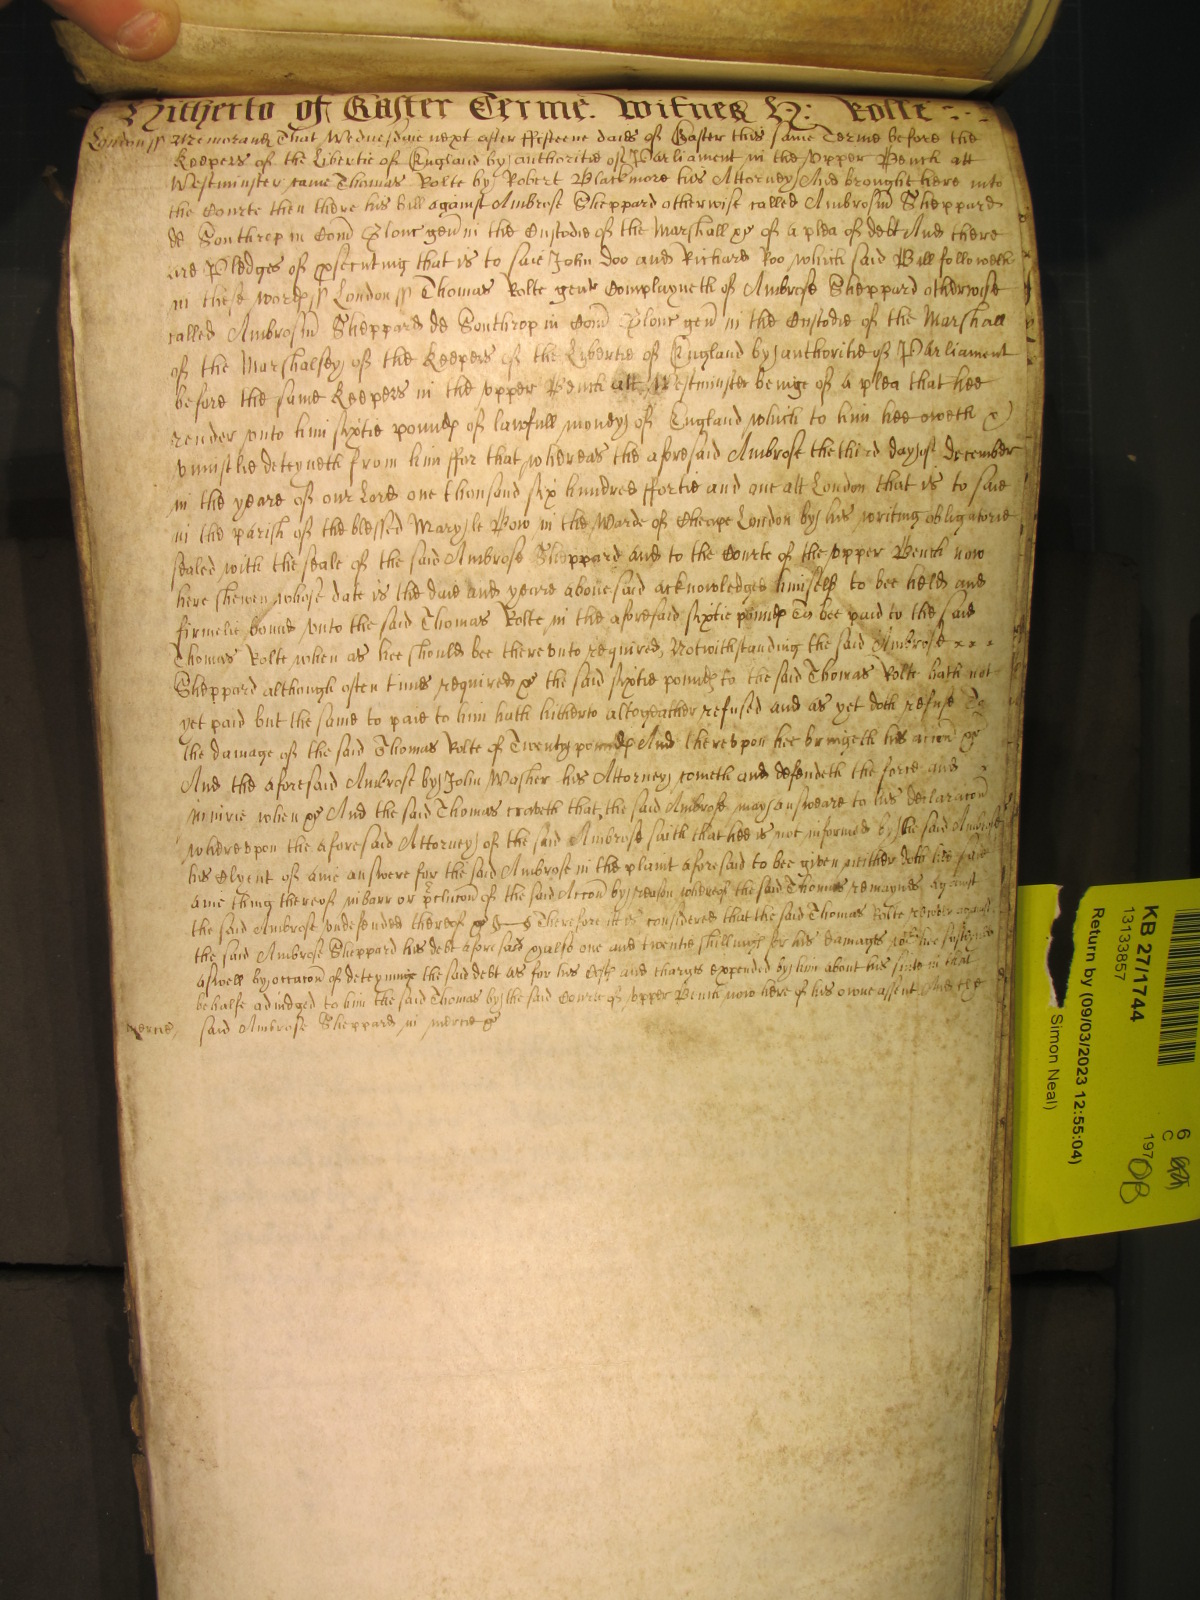 Hitherto of Easter Terme. Witnes H: Rolle
London ss Memorand That Wednesdaie next after fifteene daies of Easter this same Terme before the
Keepers of the Libertie of England by authoritie of Parliament in the vpper Bench att
Westminster came Thomas Rolte by Robert Blackmore his Attorney And brought here into
the Courte then there his bill against Ambrose Sheppard otherwise called Ambrosiu Sheppard
de Southrop in Com Glouc gen in the Custodie of the Marshall &c of a plea of debt And there
are Pledges of psecuting that is to saie John Doo and Richard Roo which said Bill followeth
in these wordes ss London ss Thomas Rolte gent Complayneth of Ambrose Sheppard otherwise
called Ambrosiu Sheppard de Southrop in Com Glouc gen in the Custodie of the Marshall
of the Marshalsey of the Keepers of the Libertie of England by authoritie of Parliament
before the same Keepers in the vpper Bench att Westminster beinge of a plea that hee
render vnto him sixtie poundes of lawfull money of England which to him hee oweth &
vniustlie deteyneth from him ffor that whereas the aforesaid Ambrose the third day of December
in the yeare of our Lord one thousand six hundred ffortie and one att London that is to saie
in the parish of the blessed Mary le Bow in the Warde of Cheape London by his writing obligatorie
sealed with the seale of the said Ambrose Sheppard and to the Courte of the vpper Bench now
here shewen whose date is the daie and yeare abouesaid acknowledged himself to bee held and
firmelie bound vnto the said Thomas Rolte in the aforesaid sixtie poundes To bee paid to the said
Thomas Rolte when as hee should bee therevnto required, Notwithstanding the said Ambrose x x x
Sheppard although often times required &c the said sixtie poundes to the said Thomas Rolte hath not
yet paid but the same to paie to him hath hitherto altogeather refused and as yet doth refuse To
the damage of the said Thomas Rolte of Twenty poundes And therevpon hee bringeth his accon &c
And the aforesaid Ambrose by John Washer his Attorney cometh and defendeth the force and
iniurie when &c And the said Thomas craveth that the said Ambrose may answeare to his declaracon
wherevpon the aforesaid Attorney of the said Ambrose saith that hee is not informed by the said Ambrose
his Clyent of anie answere for the said Ambrose in the plaint aforesaid to bee given neither doth hee saie
anie thing thereof in barr or pclucon of the said Accon by reason whereof the said Thomas remaynes against
the said Ambrose vndefended thereof &c Therefore it is considered that the said Thomas Rolte recover against
the said Ambrose Sheppard his debt aforesaid & alsoe one and twentie shillings for his damages wch hee susteyned
aswell by occacon of deteyninge the said debt as for his Costes and charges expended by him about his suite in that
behalfe adiudged to him the said Thomas by the said Courte of vpper Bench now here of his owne assent And the
mercie, said Ambrose Sheppard in mercie &c
KB 27/1744
13133857
Return by (09/03/2023 12:55:04)
Simon Neal)
6
C
197